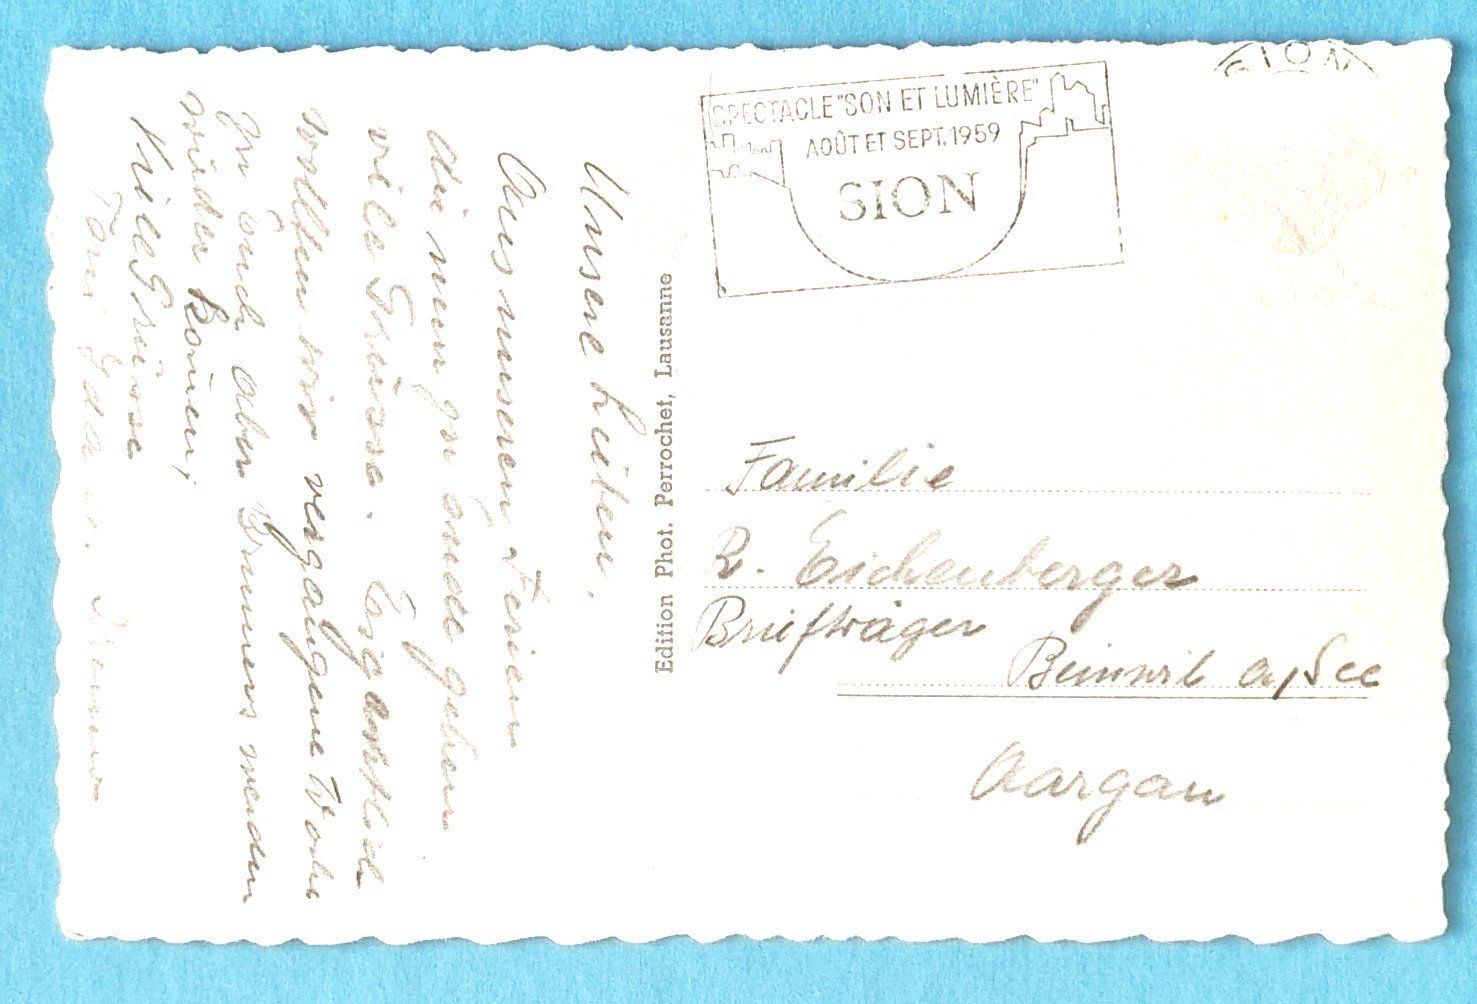 Unsere Lieben.
Aus unseren Ferien
die nun zu Ende gehen
viele Grüsse. Eigentlich
wollten wir vergangene Woche
zu Euch aber Brunners
wieder
Viele Grüsse
Ida u.
Edition Phot. Perrochet, Lausanne
SPECTACLE "SON ET LUMIÈRE"
AOÛT ET SEPT. 1959
SION
SION
Familie
R. Eichenberger
Briefträger
Beinwil a/See
Aargau